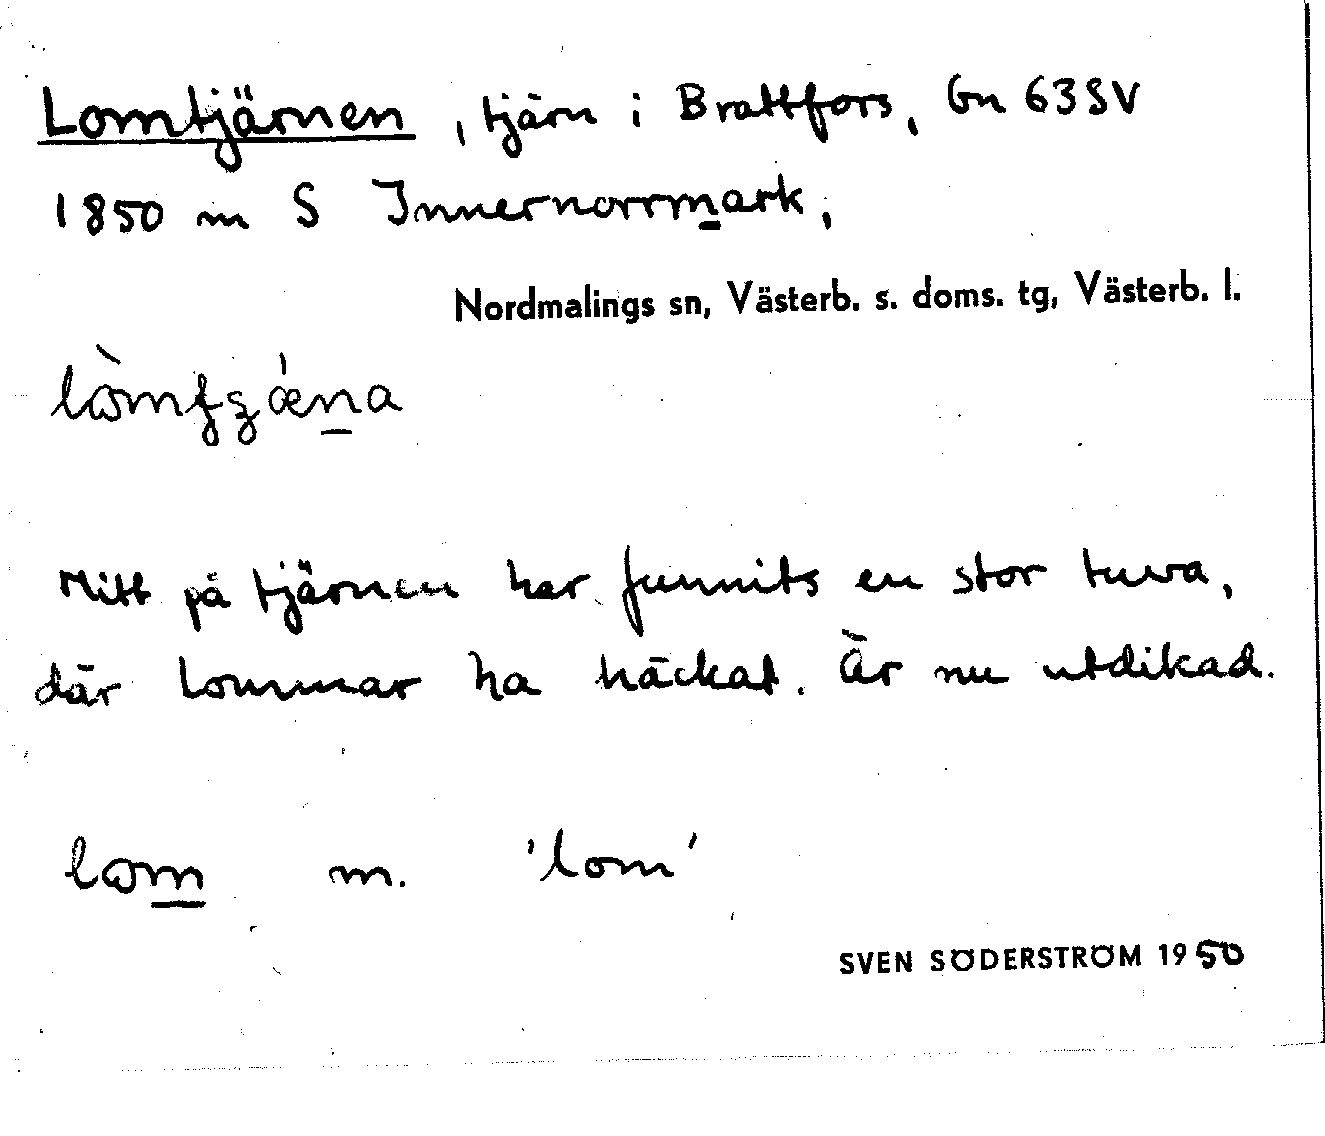 Lomtjärnen, tjärn i Brattfors, Gn 63 SV
1850 m S Innernorrmark,
Nordmalings sn, Västerb. s. doms. tg, Västerb. l.
Mitt på tjärnen har funnits en stor tuva,
där lommar ha häckat. Är nu utdikad.
lɷm m. 'lom'
SVEN SÖDERSTRÖM 1950